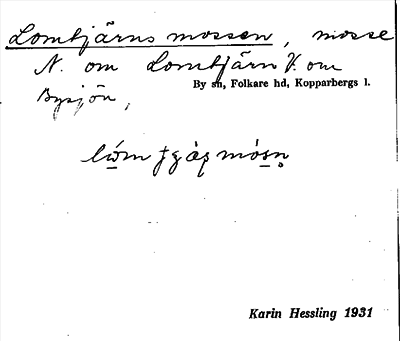 Lomtjärns mossen, mosse
N. om Lomtjärn V. om
By sn, Folkare hd, Kopparbergs l.
Bysjön,
Karin Hessling 1931